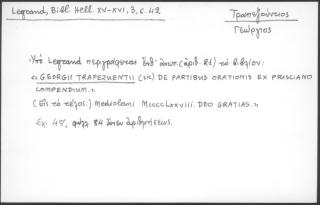 Legrand, Bibl. Hell. XV-XVI, 3, σ. 42
Τραπεζούντιος
Γεώργιος
Ὑπὸ Legrand περιγράφεται ἐνθ' ἀνωτ. (ἀριθ. 42) τὸ βιβλίον:
« GEORGII TRAPEZUENTII (sic) DE PARTIBUS ORATIONIS EX PRISCIANO
COMPENDIUM. »
(Εἰς τὸ τέλος:) Mediolani MCCCCLxxviii. DEO GRATIAS. »
Εἰς 4ον, φύλλα 84 ἄνευ ἀριθμήσεως.